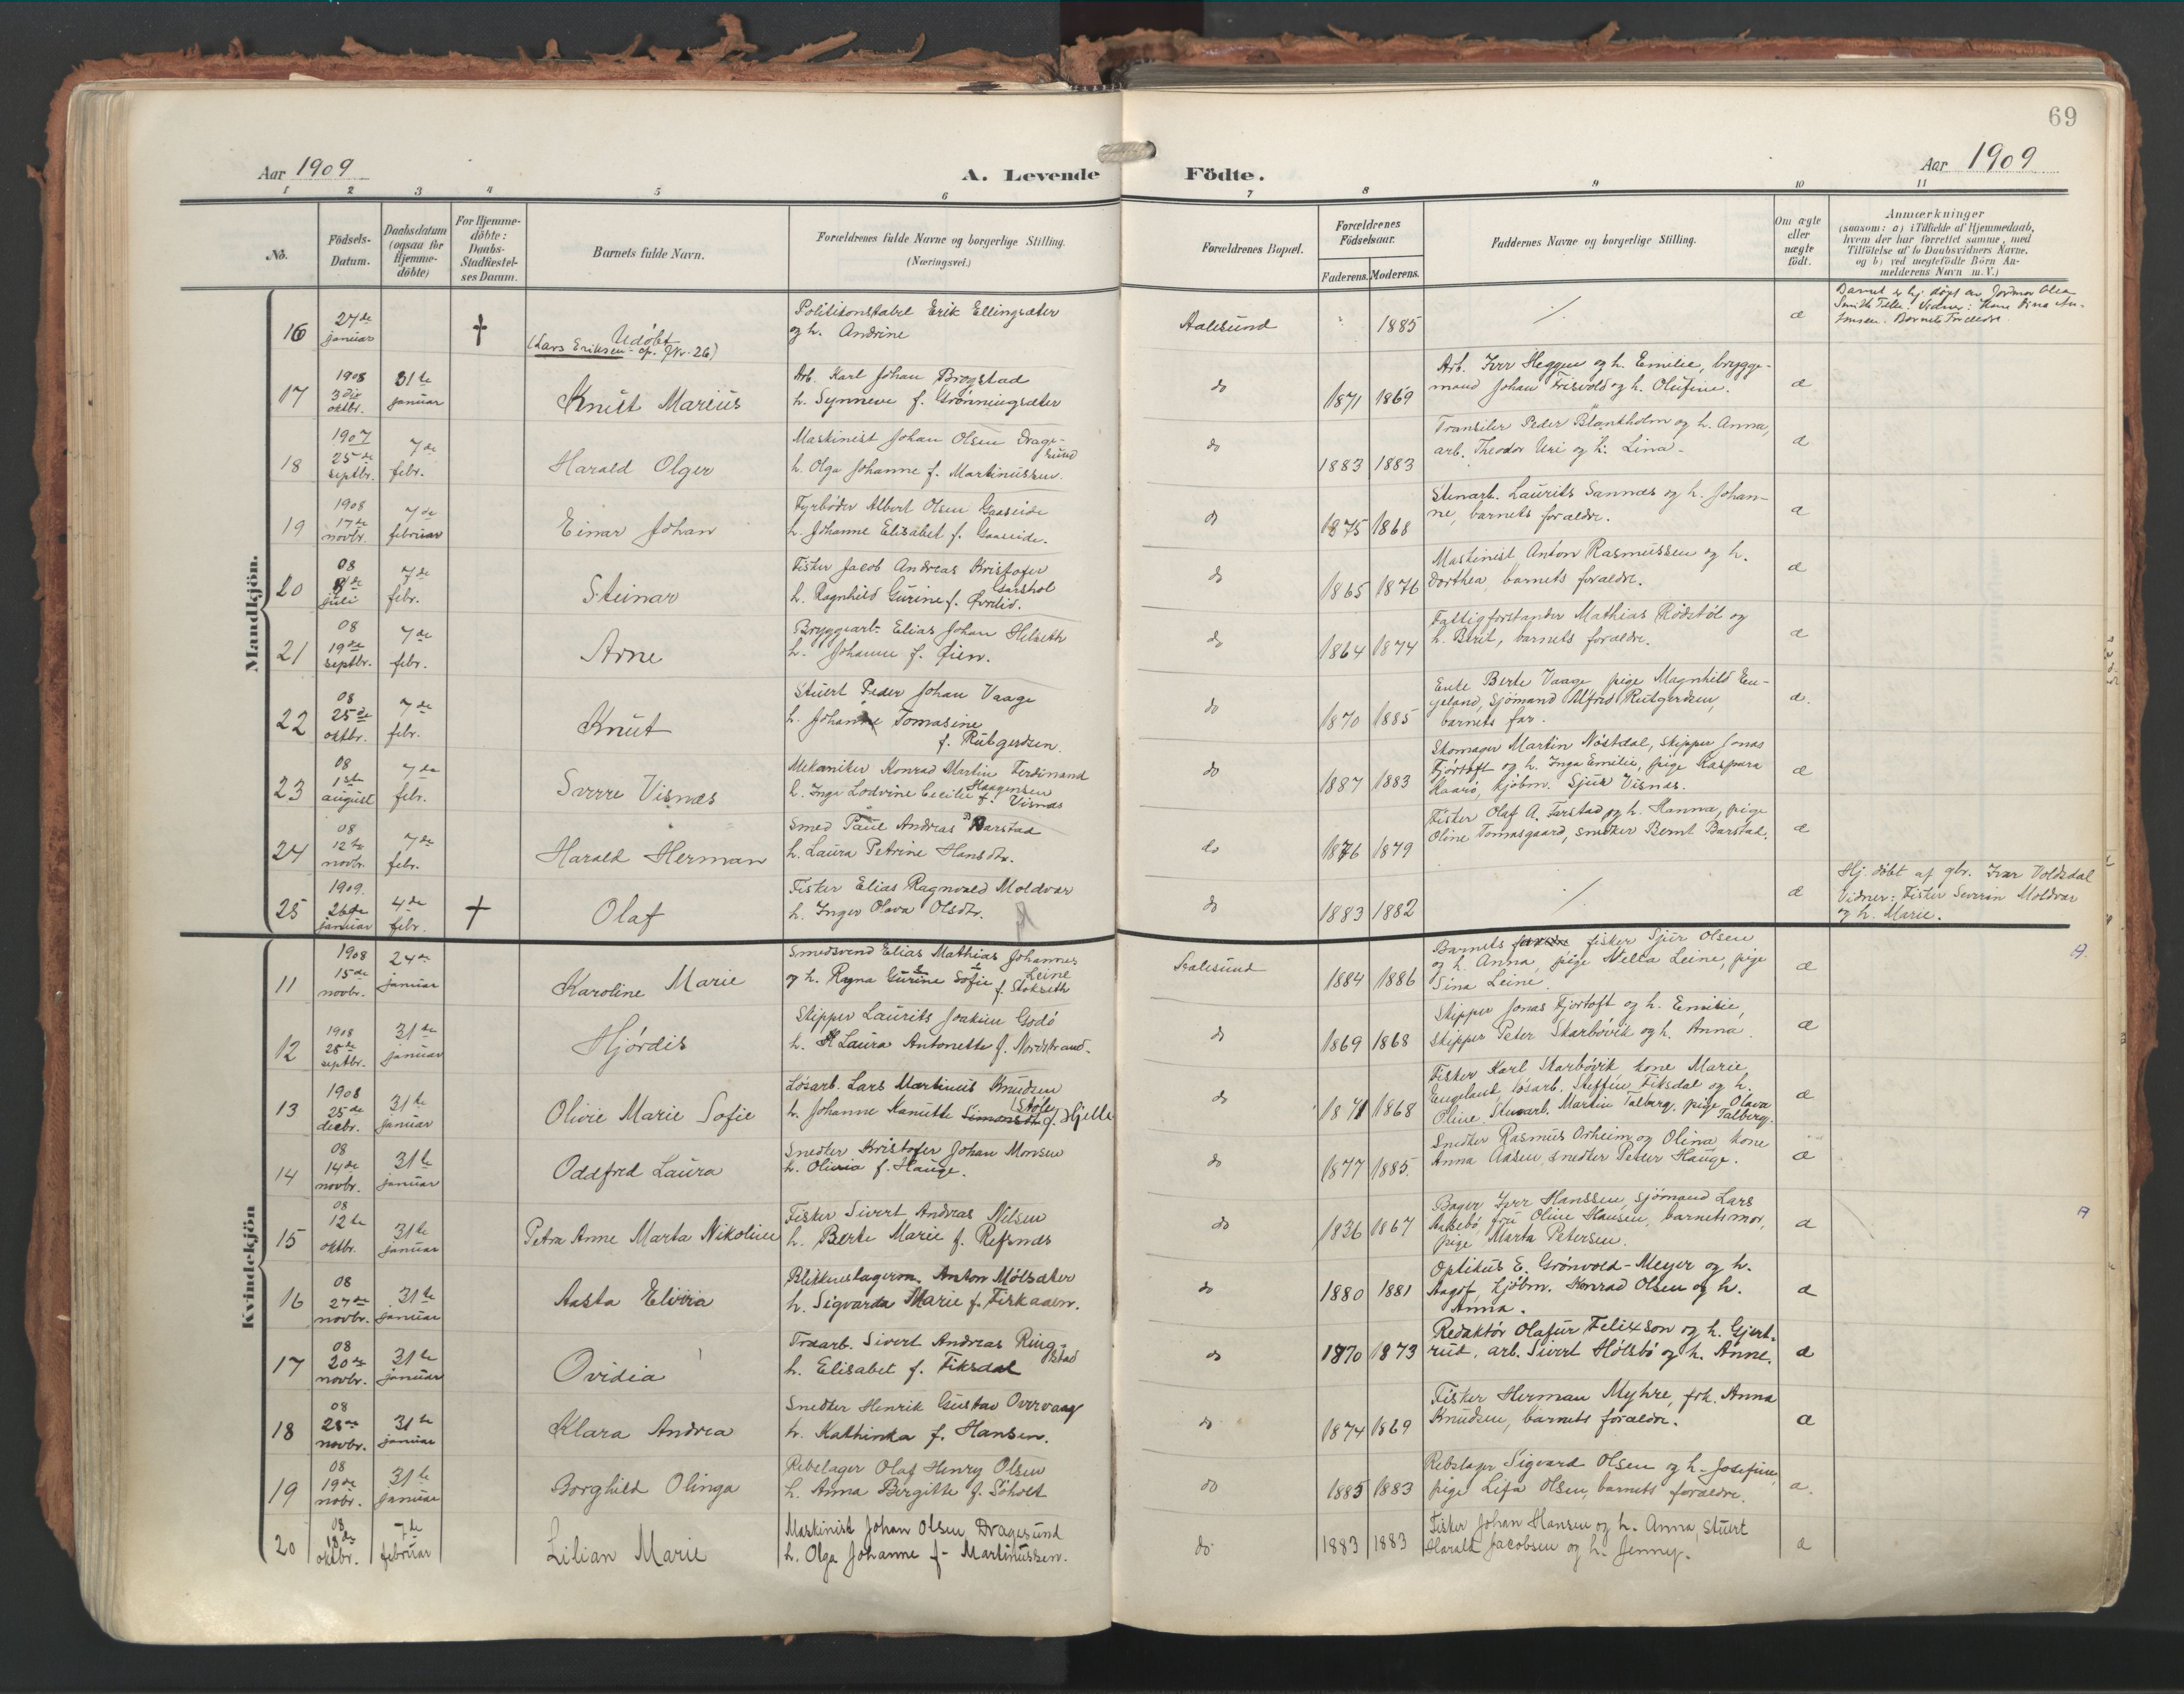 69
Aar 1909
A. Levende Födte.
Aar 1909
1 2 3 4 5 6 7 8 9 10 11
No.
Födsels-Datum.
Daabsdatum (ogsaa for Hjemme-döbte)
For Hjemme-döbte: Daabs-Stadfæstel-ses Datum.
Barnets fulde Navn.
Forældrenes fulde Navne og borgerlige Stilling. (Næringsvei.)
Forældrenes Bopæl.
Forældrenes Födselsaar.
Faderens. Moderens.
Faddernes Navne og borgerlige Stilling.
Om ægte eller uægte födt.
Anmærkninger
(saasom: a) i Tilfælde af Hjemmedaab,
hvem der har forrettet samme, med
Tilföielse af to Daabsvidners Navne,
og b) ved uægtefödte Börn An-
melderens Navn m. V.)
Mandkjön.
16 27de januar † Udöbt (Lars Eriksen - cfr. No. 26)
Politikonstabel Erik Ellingsæter
og h. Andrine
Aalesund 1885 æ
Barnet er hj. döpt av Jordmor Olea
17 1908 3die oktbr. 31te januar Knut Marius
Arb. Karl Johan Brogstad
h. Synneve f. Grönningsæter
do 1871 1869
Arb. Iver Heggen og h. Emilie, brygge-
mand Johan Frisvold og h. Olufine. æ
18 1907 25de septbr. 7de febr. Harald Olger
Maskinist Johan Olsen Drage-
sund
h. Olga Johanne f. Martinussen.
do 1883 1883
Transiler Peder Blankholm og h. Anna,
arb. Theodor Uri og h. Lina - æ
19 1908 17de novbr. 7de februar Einar Johan
Fyrböder Albert Olsen Gaaseide
h. Johanne Elisabet f. Gaaseide.
do 1875 1868
Stenarb. Laurits Sannes og h. Johan-
ne, barnets forældre. æ
20 08 8de juli 7de febr. Steinar
Fisker Jacob Andreas Kristofer
Garshol
h. Ragnhild Gurine f. Överlid.
do 1865 1876
Maskinist Anton Rasmussen og h.
Dorthea, barnets forældre. æ
21 08 19de septbr. 7de febr. Arne
Bryggearb. Elias Johan Helseth
h. Johanne f. Öien.
do 1864 1874
Fattigforstander Mathias Rödstöl og
h. Berit, barnets forældre. æ
22 08 25de oktbr. 7de febr. Knut
Stuert Peder Johan Vaage
h. Johanne Tomasine
f. Rutgerdsen.
do 1870 1885
Enke Berte Vaage, pige Magnhild En-
geland, sjömand Alfred Rutgerdsen,
barnets far. æ.
23 08 1ste august 7de febr. Sverre Visnæs
Mekaniker Konrad Martin Ferdinand
Haagensen
h. Inga Lodvine Cecilie f. Visnæs
do 1887 1883
Skomager Martin Nöstdal, skipper Jonas
Fjörtoft og h. Inga Emilie, pige Kaspara
Kaarö, kjöbm. Sjur Visnæs. æ
24 08 12te novbr. 7de febr. Harald Herman
Smed Paul Andreas Barstad
h. Laura Petrine Hansdtr.
do 1876 1879
Fisker Olaf A. Farstad og h. Hanna, pige
Oline Tomasgaard, snedker Bernt Barstad. æ
25 1909. 26de januar 4de febr. † Olaf
Fisker Elias Ragnvald Moldvær
h. Inger Olava Olsdtr.
do 1883 1882 æ
Hj. döbt af gbr. Ivar Voldsdal
Vidner: Fisker Severin Moldvær
og h. Marie.
Kvindekjön
11 1908 15de novbr. 24de januar Karoline Marie
Smedsvend Elias Mathias Johannes
Leine
og h. Ragna Gurine Sofie f. Stokseth
Aalesund 1884 1886
Barnets forældre fisker Sjur Olsen
og h. Anna, pige Nella Leine, pige
Sina Leine. æ
12 1908 28de septbr. 31te januar Hjördis
Skipper Laurits Joakim Godö
h. Laura Antonette f. Nordstrand.
do 1869 1868
Skipper Jonas Fjörtoft og h. Emilie,
skipper Peter Skarbövik og h. Anna. æ
13 1908 25de decbr. 31te januar Olivie Marie Sofie
Lösarb. Lars Martinus Knudsen
h. Johanne Kanutte Simonsdtr f. Hjelle
do 1871 1868
Fisker Karl Skarbövik, kone Marie
Engeland, lösarb. Steffen Fiksdal og h.
Oline. Stenarb. Martin Talberg, pige Olava
Talberg. æ
14 08 14de novbr. 31te januar Oddfred Laura
Snedker Kristofer Johan Monsen
h. Olivia f. Hauge.
do 1877 1885.
Snedker Rasmus Orheim og Olina, kone
Anna Aasen, snedker Peder Hauge. æ
15 08 12te oktbr. 31te januar Petra Anne Marta Nikoline
Fisker Sivert Andreas Nilsen
h. Berte Marie f. Refsnæs
do 1836 1867
Bager Iver Hanssen, sjömand Lars
Aakebö, fru Oline Hansen, barnets mor,
pige Marta Petersen. æ
16 08 27de novbr. 31te januar Aasta Elivia
Blikkenslagerm. Anton Mölsæter
h. Sigvarda Marie f. Fiskaaen.
do 1880 1881
Optikus E. Grönvold-Meyer og h.
Aagot, kjöbm. Konrad Olsen og h.
Anna. æ
17 08 20de novbr. 31te januar Ovidia
Træarb. Sivert Andreas Ring-
stad
h. Elisabet f. Fiksdal
do 1870 1873
Redaktör Olafur Felixson og h. Gjert-
rud, arb. Sivert Hölsbö og h. Anne. æ
18 08 28de novbr. 31te januar Klara Andrea
Snedker Henrik Gustav Overvaag
h. Kathinka f. Hansen.
do 1874 1869
Fisker Herman Myhre, frk. Anna
Knudsen, barnets forældre. æ
19 08 19de novbr. 31te januar Borghild Olinga
Rebslager Olaf Henry Olsen
h. Anna Birgitte f. Söholt
do 1885 1883
Rebslager Sigvard Olsen og h. Josefine,
pige Lifa Olsen, barnets forældre. æ.
20 08 18de oktbr. 7de februar Lilian Marie
Maskinist Johan Olsen Dragesund
h. Olga Johanne f. Martinussen.
do 1883 1883
Fisker Johan Hansen og h. Anna, stuert
Harald Jacobsen og h. Jenny. æ